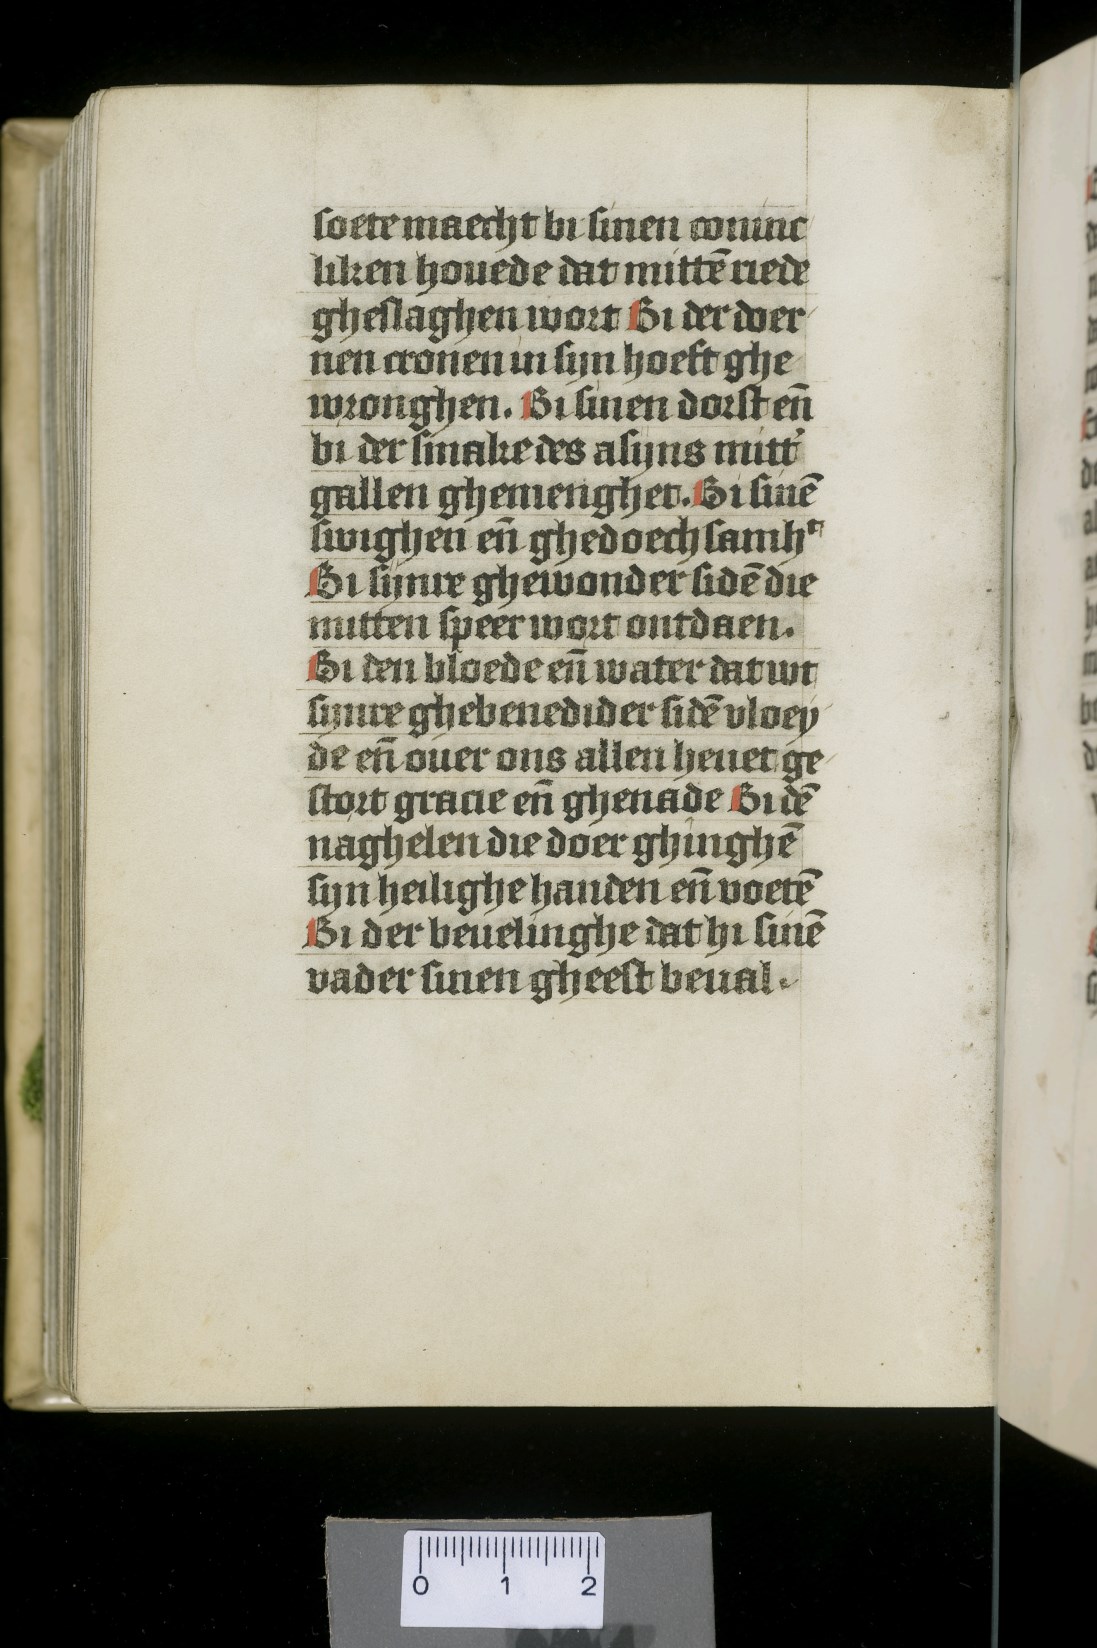 soete maecht bi sinen coninc
liken houede dat mittē riede
gheslaghen wort Bi der doer
nen cronen in sijn hoeft ghe
wronghen. Bi sinen dorst en̄
bi der smake des asijns mitt'
gallen ghemenghet. Bi sinē
swighen en̄ ghedoechsamhᵗ
Bi sijnre ghewonder sidē die
mitten speer wort ontdaen.
Bi den bloede en̄ water dat wt
sijnre ghebenedider sidē vloey
de en̄ ouer ons allen heuet ge
stort gracie en̄ ghenade Bi dē
naghelen die doer ghinghē
sijn heilighe handen en̄ voetē
Bi der beuelinghe dat hi sinē
vader sinen gheest beual.
0 1 2